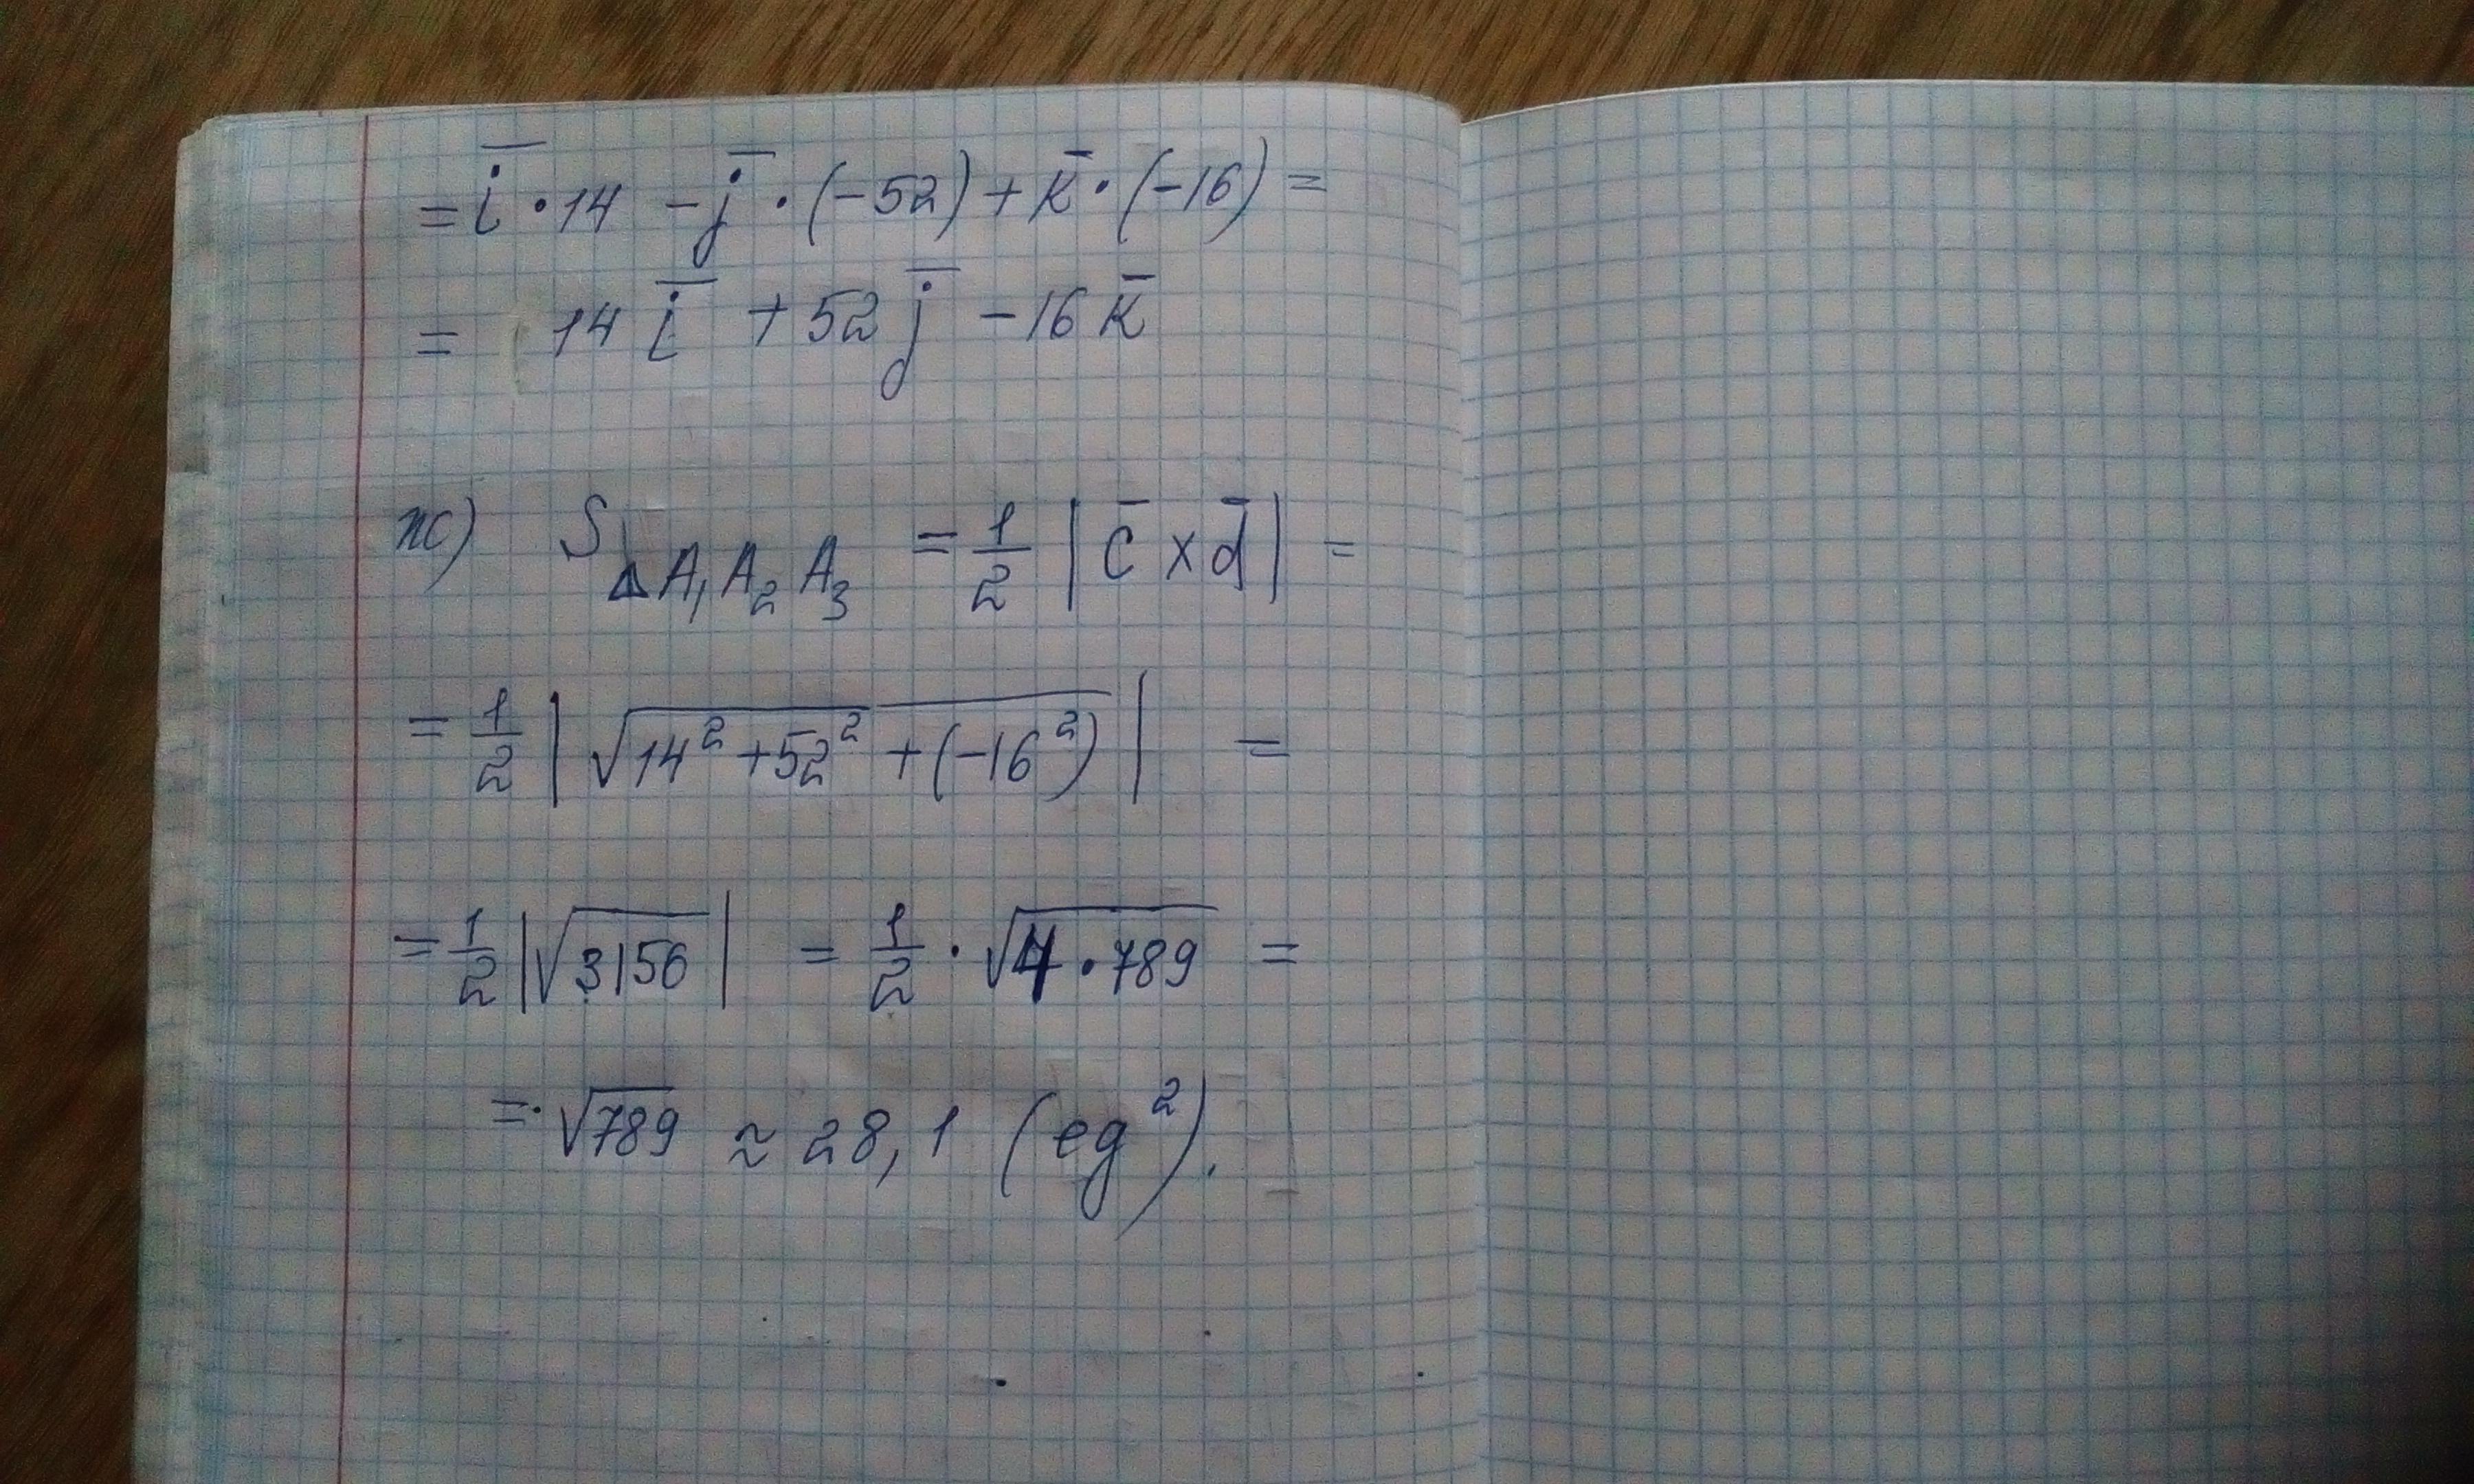 = i̅ · 14 - j̅ · (-52) + k̅ · (-16) =
= 14 i̅ + 52 j̅ - 16 k̅
ж) S△A₁A₂A₃ = 1/2 | c̅ × d̅ | =
= 1/2 | √(14² + 52² + (-16²)) | =
= 1/2 |√3156| = 1/2 · √(4 · 789) =
= · √789 ≈ 28,1 (ед²).